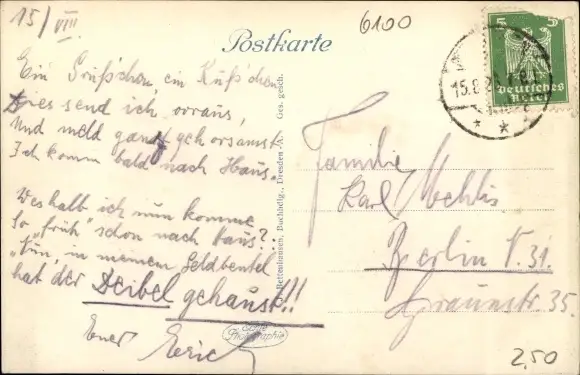 15/VIII.
6100
Postkarte
5 5
Deutsches
Reich
15.8.
Ein Grüß'chen, ein Küß'chen
Dies send ich voraus,
Und meld ganz gehorsamst
Ich komm bald nach Haus.
Weshalb ich nun komme
So „früh" schon nach Haus?..
„Nun, in meinem Geldbeutel
hat der Deibel gehaust!!
Euer Eric
Buchhdlg., Dresden-A. Ges. gesch.
Echte
Photographie
Familie
Karl Mehlis
Berlin N. 31.
Graunstr 35.
2,50